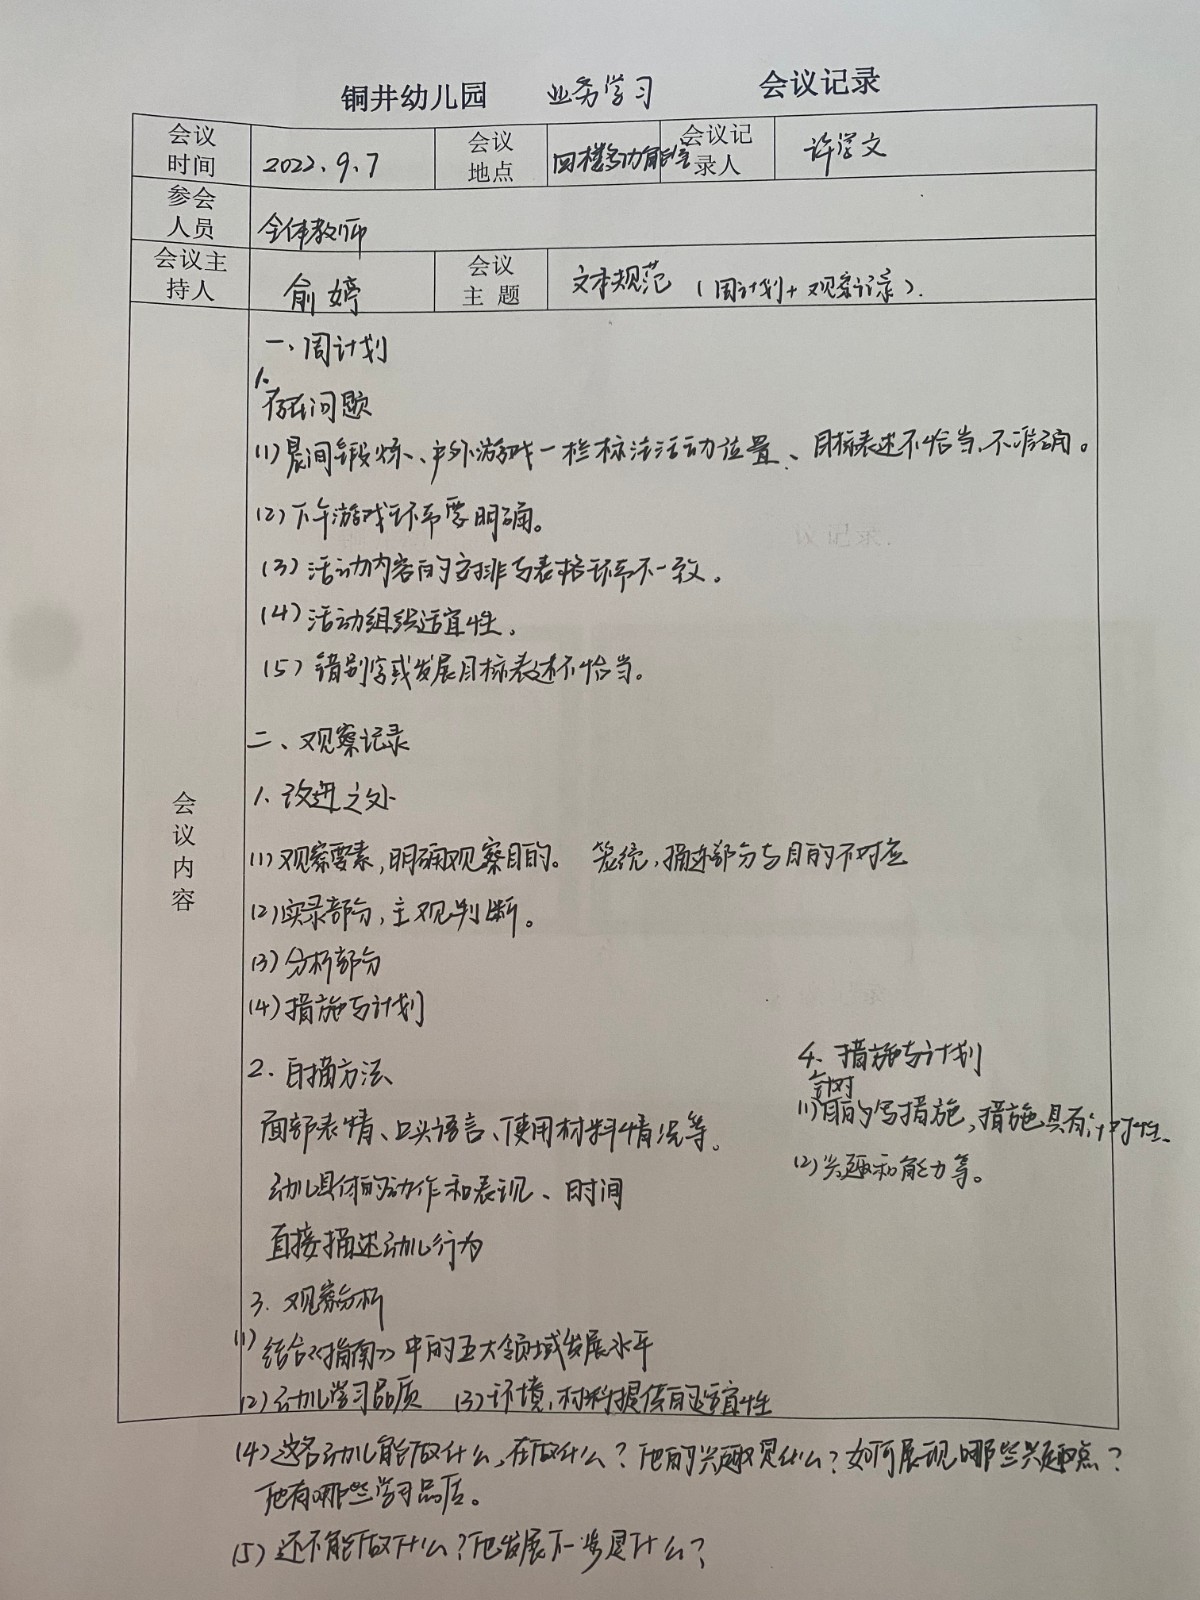 铜井幼儿园 业务学习 会议记录
会议时间 2022.9.7 会议地点 四楼多功能室 会议记录人 许学文
参会人员 全体教师
会议主持人 俞婷 会议主题 文本规范（周计划+观察记录）.
会议内容
一、周计划
1.
存在问题
(1)晨间锻炼、户外游戏一栏标注活动位置、目标表述不恰当、不准确。
(2)下午游戏环节要明确。
(3)活动内容的安排与表格环节不一致。
(4)活动组织适宜性.
(5)错别字或发展目标表述不恰当。
二、观察记录
1.改进之处
(1)观察要素,明确观察目的。 笼统,描述部分与目的不对应
(2)实录部分,主观判断。
(3)分析部分
(4)措施与计划
2.白描方法
面部表情、口头语言、使用材料情况等。
幼儿具体的动作和表现、时间
直接描述幼儿行为
3.观察分析
(1)结合《指南》中的五大领域发展水平
(2)幼儿学习品质 (3)环境,材料提供的适宜性
(4)这名幼儿能做什么,在做什么?他的兴趣是什么?如何展现哪些兴趣点?
他有哪些学习品质。
(5)还不能做什么?他发展下一步是什么?
4.措施与计划
针对
(1)目的写措施,措施具有针对性.
(2)兴趣和能力等。
议记录.